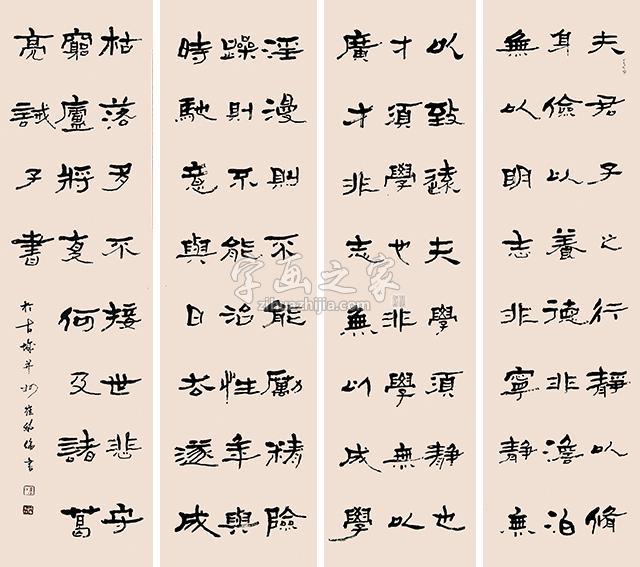 夫君子之行靜以脩
身儉以養德非澹泊
無以明志非寧靜無
以致遠夫學須靜也
才須學也非學無以
廣才非志無以成學
淫漫則不能勵精險
躁則不能治性年與
時馳意與日去遂成
枯落多不接世悲守
窮廬將复何及諸葛
亮誡子書
於古城并州崔書
字画之家
zihuazhijia.com